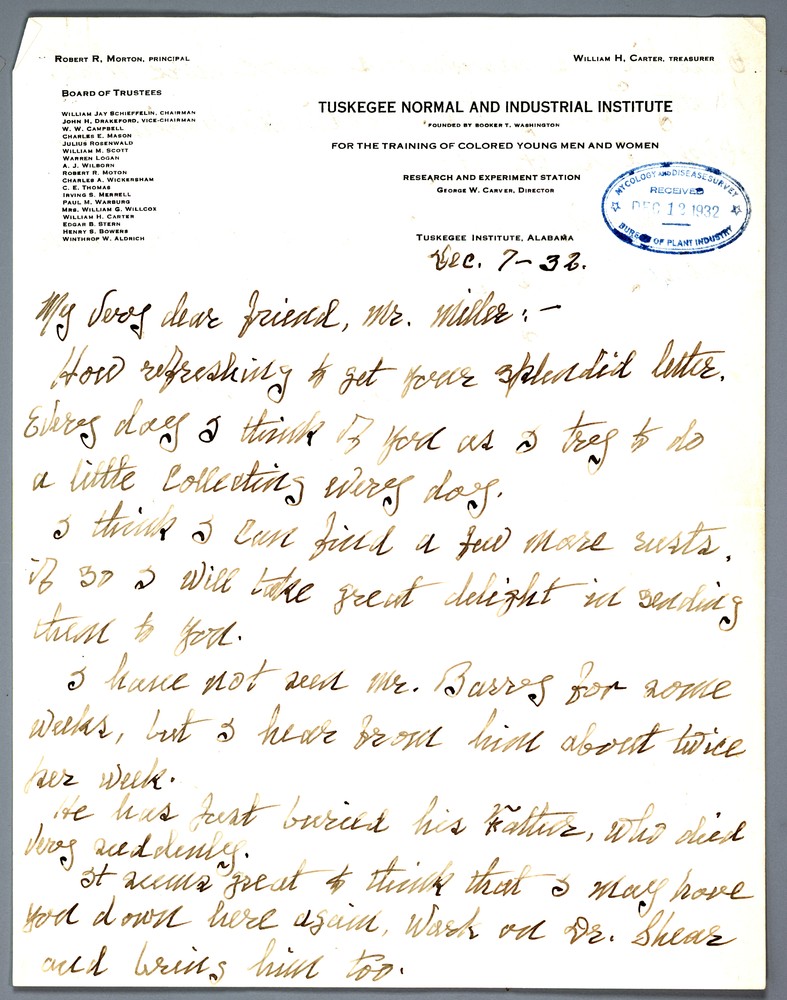 ROBERT R. MORTON, PRINCIPAL
WILLIAM H. CARTER, TREASURER
BOARD OF TRUSTEES
WILLIAM JAY SCHIEFFELIN, CHAIRMAN
JOHN H. DRAKEFORD, VICE-CHAIRMAN
W. W. CAMPBELL
CHARLES E. MASON
JULIUS ROSENWALD
WILLIAM M. SCOTT
WARREN LOGAN
A. J. WILBORN
ROBERT R. MOTON
CHARLES A. WICKERSHAM
C. E. THOMAS
IRVING S. MERRELL
PAUL M. WARBURG
MRS. WILLIAM G. WILLCOX
WILLIAM H. CARTER
EDGAR B. STERN
HENRY S. BOWERS
WINTHROP W. ALDRICH
TUSKEGEE NORMAL AND INDUSTRIAL INSTITUTE
FOUNDED BY BOOKER T. WASHINGTON
FOR THE TRAINING OF COLORED YOUNG MEN AND WOMEN
RESEARCH AND EXPERIMENT STATION
GEORGE W. CARVER, DIRECTOR
MYCOLOGY AND DISEASE SURVEY
RECEIVED
DEC 12 1932
BUREAU OF PLANT INDUSTRY
TUSKEGEE INSTITUTE, ALABAMA
Dec. 7-32.
My very dear friend, Mr. Miller:-
How refreshing to get your splendid letter.
Every day I think of you as I try to do
a little collecting every day.
I think I can find a few more rusts,
if so I will take great delight in sending
them to you.
I have not seen Mr. Barry for some
weeks, but I hear from him about twice
per week.
He has just buried his Father, who died
very suddenly.
It seems great to think that I may have
you down here again, Work on Dr. Shear
and bring him too.